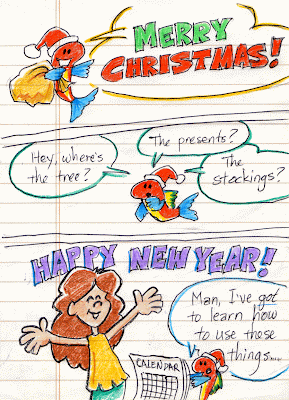 MERRY
CHRISTMAS!
Hey, where's
the tree?
The presents?
The
stockings?
HAPPY NEW YEAR!
Man, I've got
to learn how
to use those
things....
CALENDAR